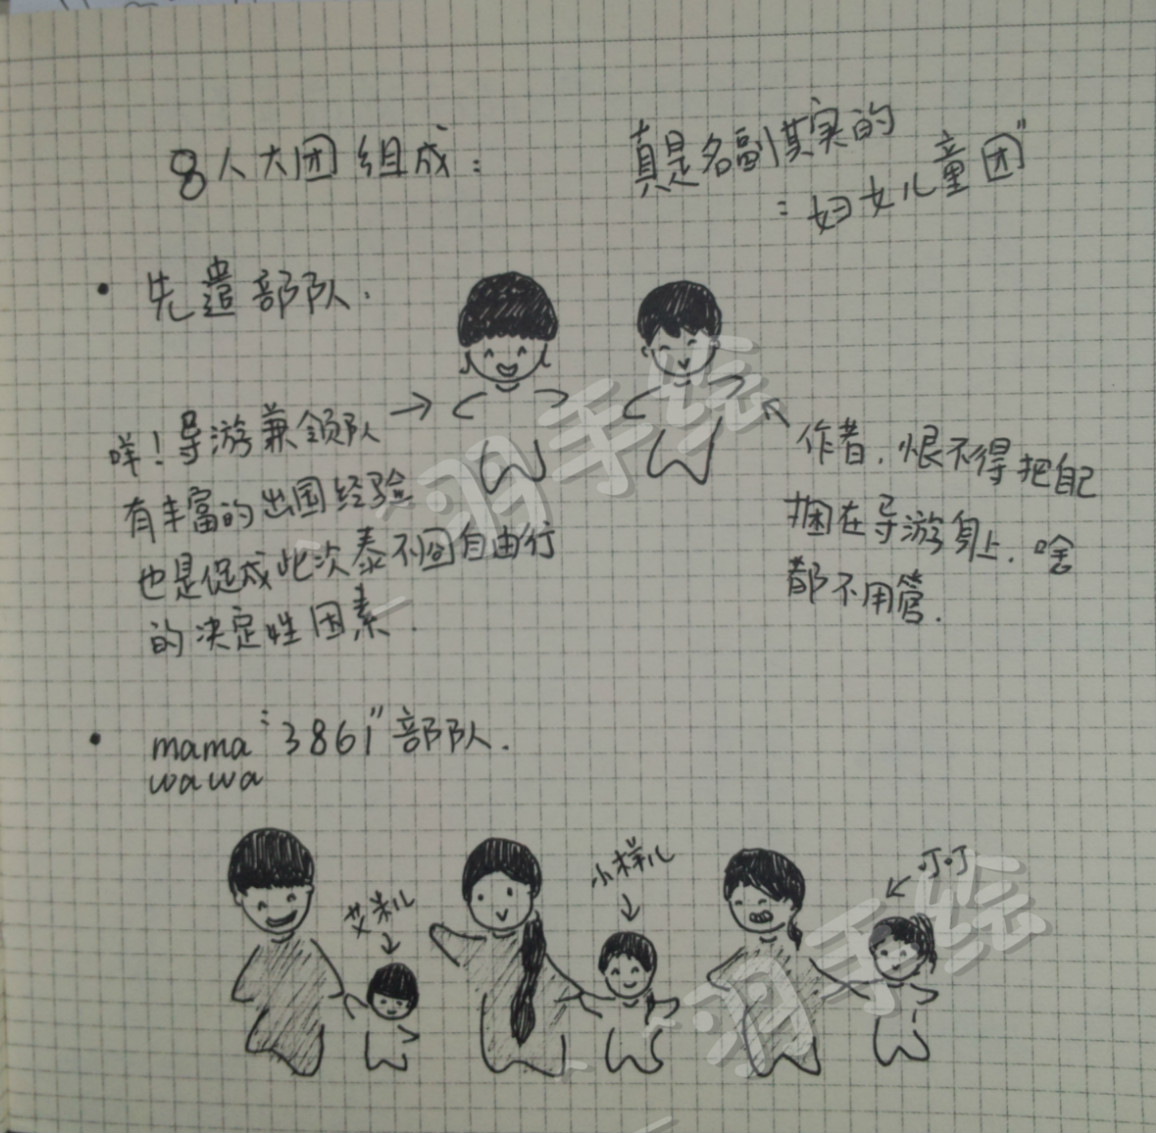 8人大团组成：
真是名副其实的
“妇女儿童团”
• 先遣部队.
咩！导游兼领队
有丰富的出国经验
也是促成此次泰不囧自由行
的决定性因素.
作者.恨不得把自己
捆在导游身上.啥
都不用管.
• mama“3861”部队.
wawa
艾米儿
小样儿
叮叮
一羽手绘
一羽手绘